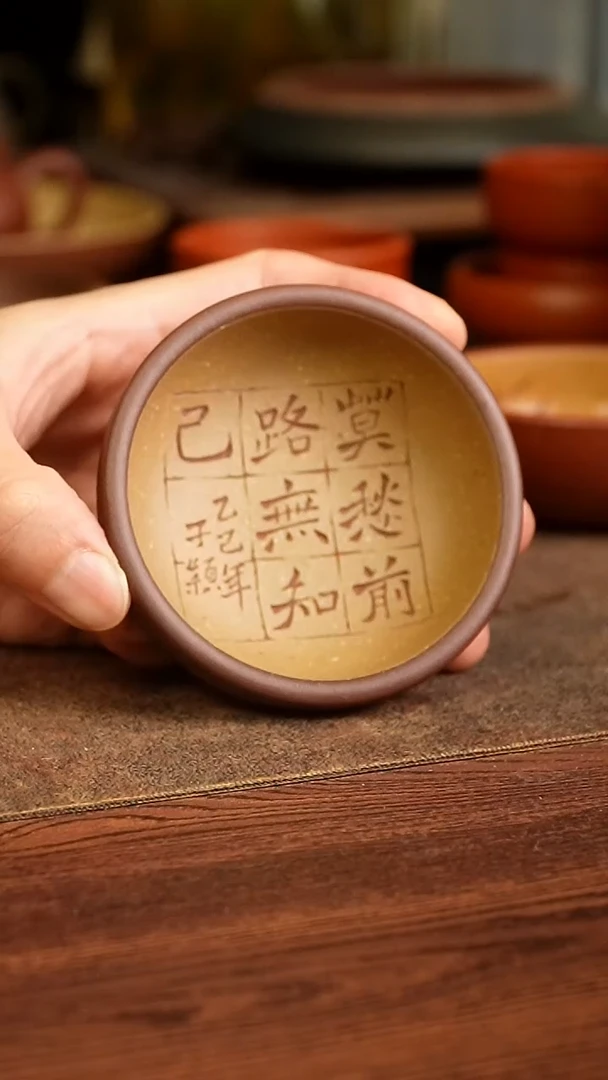 莫愁前
路無知
己
乙巳年
于穎